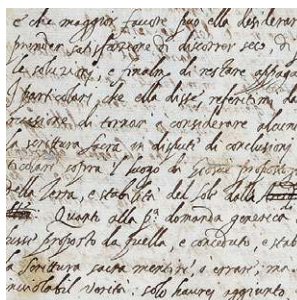 e che maggior favore puo ella desiderar
prender satisfazione di discorrer seco, di
le soluzioni, e finalm. di restare appaga
I particolari, che ella disse, referitimi da
casione di tornar a considerare alcune
la scrittura sacra in dispute di conclusioni
ticolari sopra l' luogo di Giosuè proposto
della Terra, e stabilità del Sole dalla
Quanto alla p.ª domanda generica
mi proposto da quella, e conceduto, e stab
la Scrittura sacra mentire, o errare; ma
inviolabil verità: solo haurei aggiunto